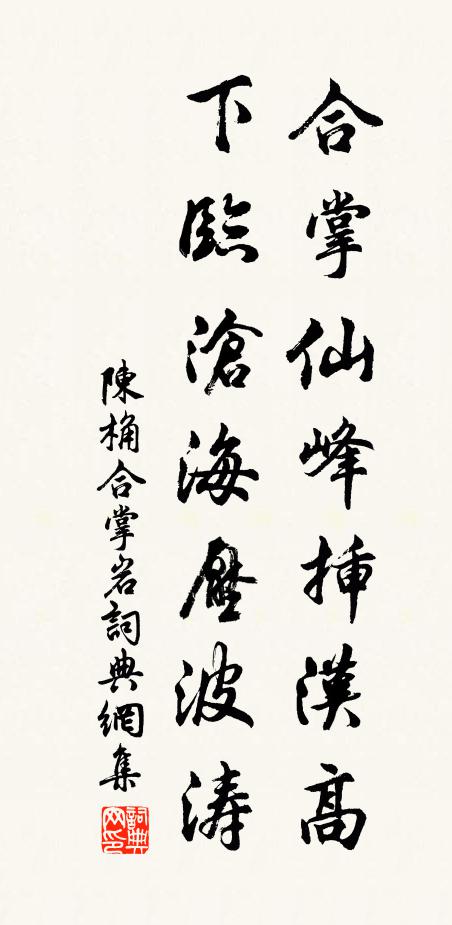 合掌仙峰挿漢高
下臨滄海壓波濤
陳桷合掌岩詞典網集
詞典網印